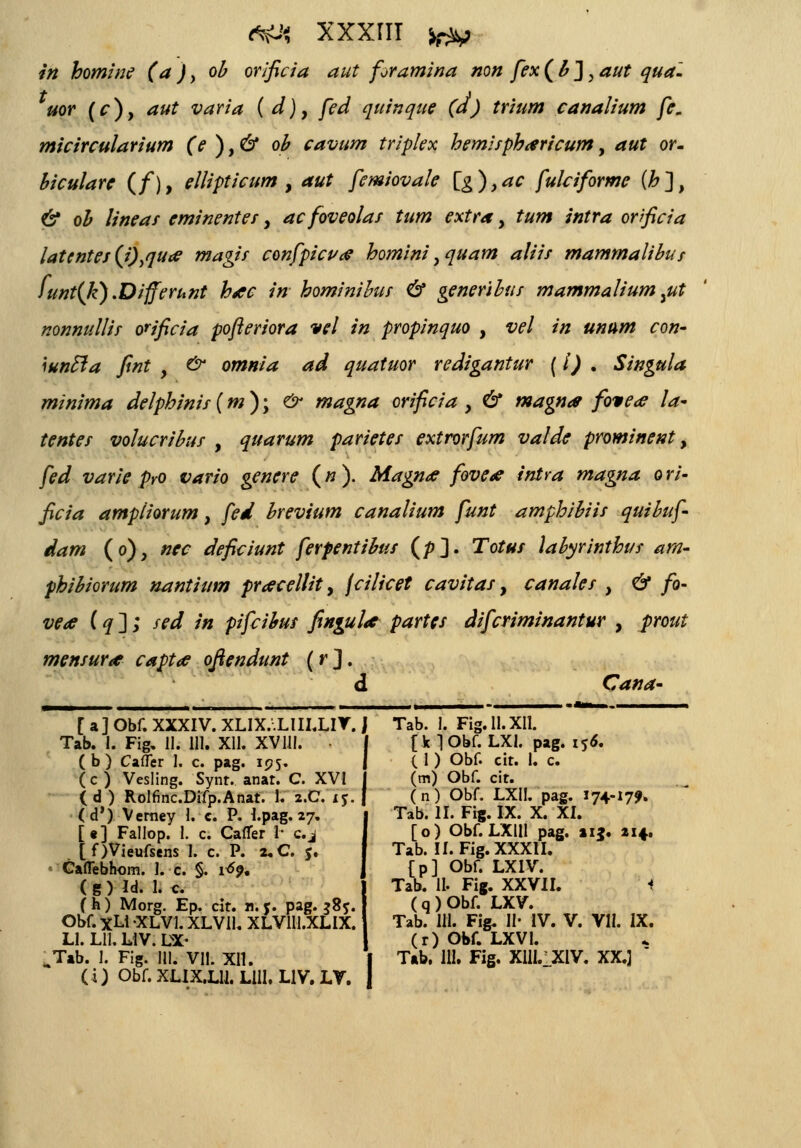 XXXIII
in homine (a), ob orificia aut foramina non ſex (b], aut qua-
tuor (c), aut varia (d), ſed quinque (d') trium canalium ſe-
micircularium (e), & ob cavum triplex hemisphæricum, aut or-
biculare (f), ellipticum, aut ſemiovale [g), ac fulciforme (h],
& ob lineas eminentes, ac foveolas tum extra, tum intra orificia
latentes (i), quæ magis conſpicuæ homini, quam aliis mammalibus
ſunt(k). Differunt hæc in hominibus & generibus mammalium, ut
nonnullis orificia poſteriora vel in propinquo, vel in unum con-
iuncta ſint, & omnia ad quatuor redigantur (l). Singula
minima delphinis (m); & magna orificia, & magnæ foveæ la-
tentes volucribus, quarum parietes extrorſum valde prominent,
ſed varie pro vario genere (n). Magnæ foveæ intra magna ori-
ficia ampliorum, ſed brevium canalium ſunt amphibiis quibuſ-
dam (o), nec deficiunt ſerpentibus (p]. Totus labyrinthus am-
phibiorum nantium præcellit, ſcilicet cavitas, canales, & fo-
veæ (q]; sed in piſcibus ſingulæ partes diſcriminantur, prout
menſuræ captæ oſtendunt (r].
d Cana-
[a] Obſ. XXXIV. XLIX. LIII. LIV.
Tab. I. Fig. II. III. XII. XVIII.
(b) Caſſer l. c. pag. 195.
(c) Vesling. Synt. anat. C. XVI
(d) Rolfinc. Diſp. Anat. l. 2. C. 15.
(d') Verney l. c. P. I. pag. 27.
[e] Fallop. l. c. Caſſer l. c.
[f) Vieuſsens l. c. P. 2. C. 5.
Caſſebhom. l. c. §. 169.
(g) Id. l. c.
(h) Morg. Ep. cit. n. 5. pag. 385.
Obſ. XLI-XLVI. XLVII. XLVIII. XLIX.
LI. LII. LIV. LX.
Tab. I. Fig. III. VII. XII.
(i) Obſ. XLIX. LII. LIII. LIV. LV.
Tab. I. Fig. II. XII.
[k] Obſ. LXI. pag. 156.
(l) Obſ. cit. l. c.
(m) Obſ. cit.
(n) Obſ. LXII. pag. 174-179.
Tab. II. Fig. IX. X. XI.
[o) Obſ. LXIII pag. 213. 214.
Tab. II. Fig. XXXII.
[p] Obſ. LXIV.
Tab. II. Fig. XXVII.
(q) Obſ. LXV.
Tab. III. Fig. II. IV. V. VII. IX.
(r) Obſ. LXVI.
Tab. III. Fig. XIII. XIV. XX.]